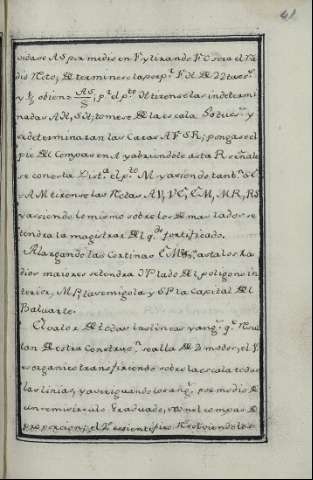 41
vidase AS por medio en F, y tirando FO sera el Ra
dio Recto, determinese la perp.r F H de 22 tues.s
y 1/2 obien AS/8, p.r el p.to H tirense las indetermi
nadas AH, SH, tomese de la escala
y
sedeterminaran las Caras AV SR; pongase el
pie del Compas en A y abriendole asta R señale
se con esta Dist.a el p.to M y asiendo tanb.n SC
AM tirense las Rectas AV, VC, CM, MR, RS
y asiendo lo mismo sobre los demas lados se
tendra la magistral del q.do fortificado.
Alargando las Cortinas CM asta los Ra
dios maiores setendra OP lado del poligono in
terior, MP la semigola y SP la Capital del
Baluarte.
El valor de todas las lineas y ang.s q.e Resul
tan de esta Construc.n se alla de 2 modos, el 1.
es organico transfiriendo sobre la escala todas
las lineas, y averiguando los ang.s por medio de
un semicirculo Graduado, con el compas de
proporcion; el 2 es sientifico Resolviendo los